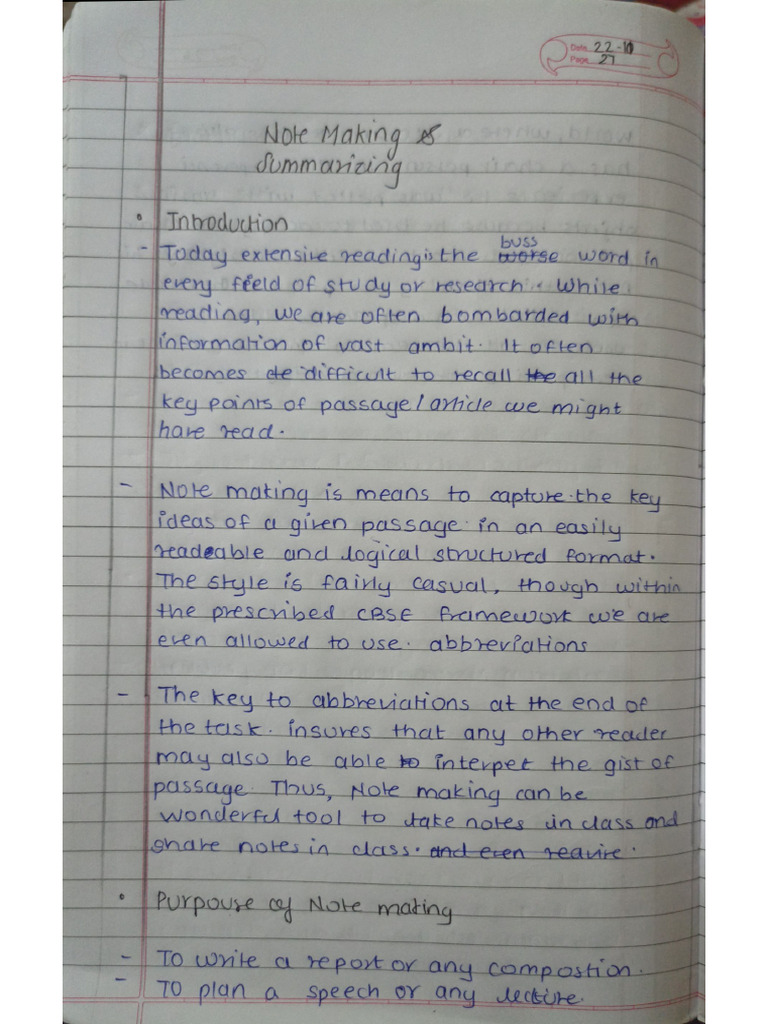 Date 22-10
Page 27
Note Making &
Summarizing
• Introduction
- Today extensive reading is the buss word in
every field of study or research. While
reading, we are often bombarded with
information of vast ambit. It often
becomes difficult to recall all the
key points of passage/article we might
have read.
- Note making is means to capture the key
ideas of a given passage in an easily
readeable and logical structured format.
The style is fairly casual, though within
the prescribed CBSE framework we are
even allowed to use. abbreviations
- The key to abbreviations at the end of
the task. insures that any other reader
may also be able to interpet the gist of
passage. Thus, Note making can be
wonderful tool to take notes in class and
share notes in class.
• Purpouse of Note making
- To write a report or any compostion.
- To plan a speech or any lecture.